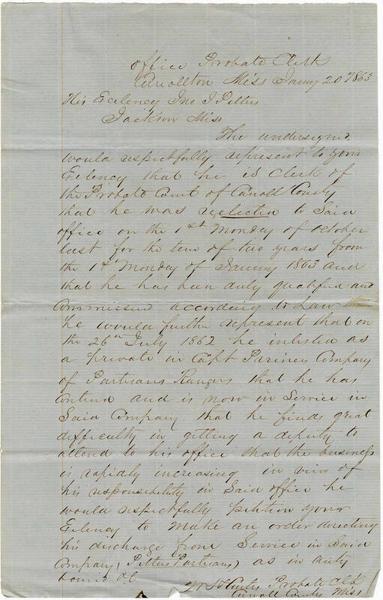 Office Probate Clk
Carrollton Miss Jany 20 1863
His Excelency Jno J Pettus
Jackson Miss
The undersigned
would respectfully represent to your
Exelency that he is Clerk of
the Probate Court of Carroll County
that he was reelected to said
office on the 1st Monday of October
last for the term of two years from
the 1st Monday of Jany 1863 and
that he has been duly qualified and
commissioned according to Law
he would further represent that on
the 26th July 1862 he inlisted as
a private in Capt Company
of Partisans Rangers that he has
and is now in Service in
Said Company that he finds great
difficulty in getting a deputy to
attend to his office that the business
is rapidly increasing in view of
his responsibility in Said office he
would respectfully petition your
Exlency to make an order directing
his discharge from Service in Said
Company, (Pettus Partisans) as in duty
bound &c
Probate Clk
Carroll County Miss